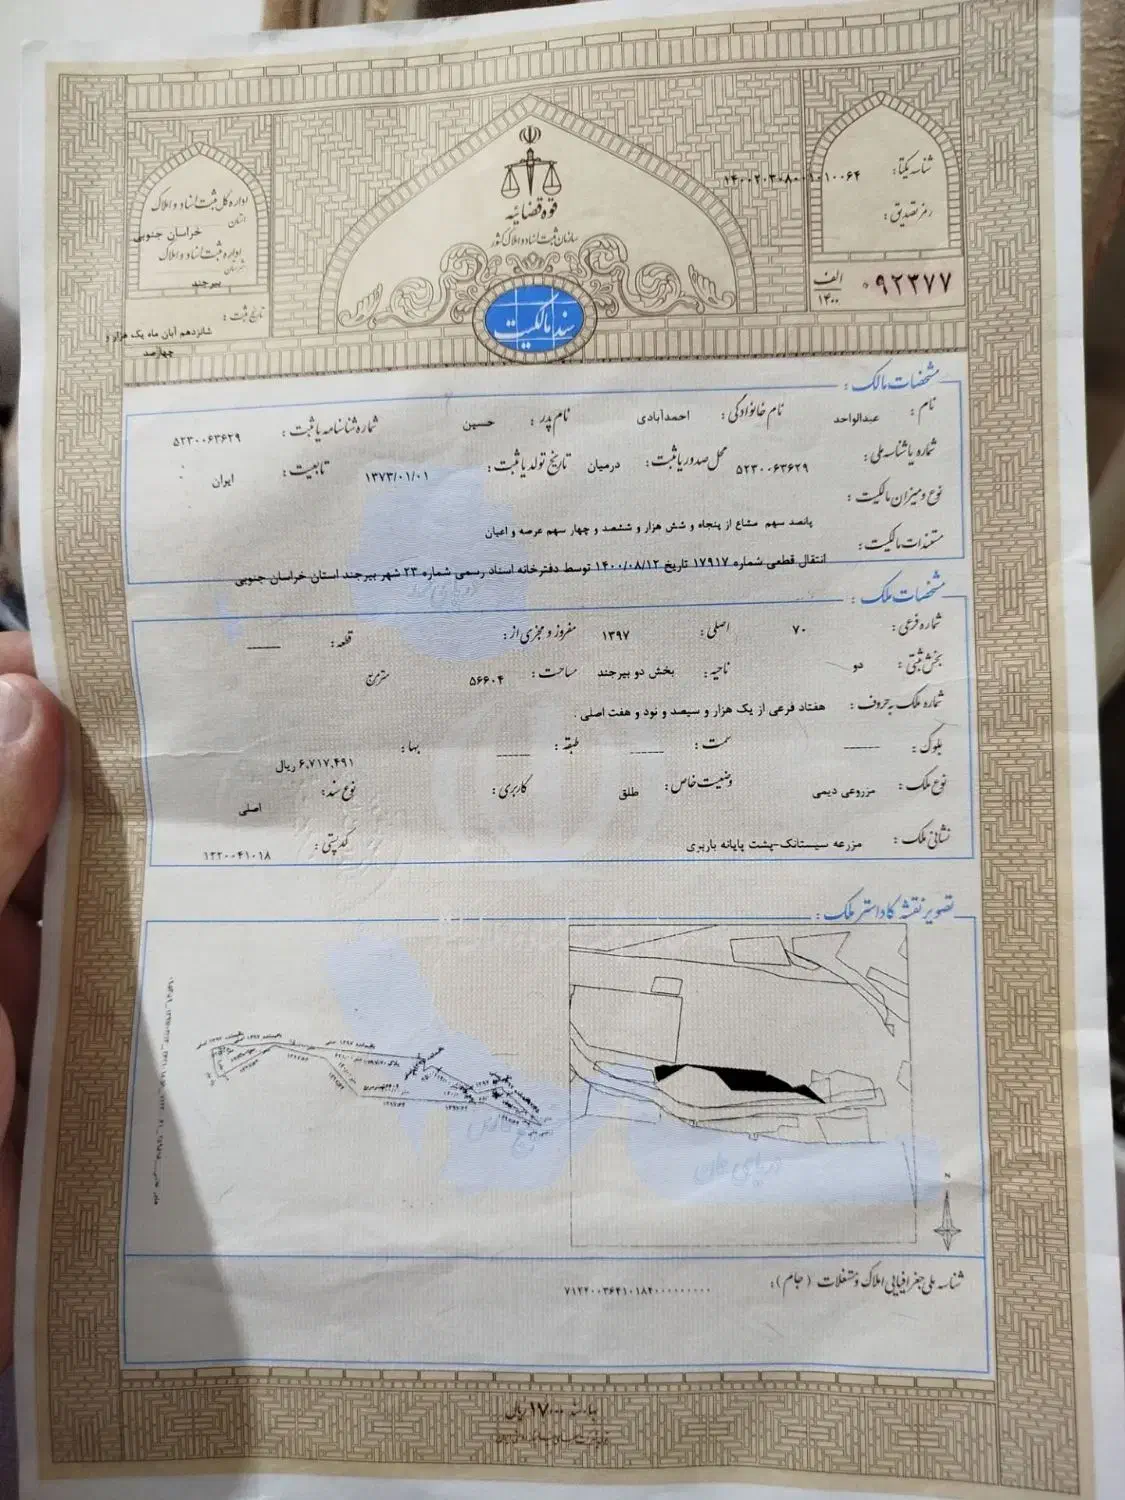 قوه قضائیه
سازمان ثبت اسناد و املاک کشور
سند مالکیت
شناسه یکتا: ۱۴۰۰۲۰۳۰۸۰۰۱۰۱۰۰۶۴
رمز تصدیق:
الف ۱۴۰۰ ۰۹۲۳۷۷
اداره کل ثبت اسناد و املاک
استان
خراسان جنوبی
اداره ثبت اسناد و املاک
شهرستان
بیرجند
تاریخ ثبت:
شانزدهم آبان ماه یک هزار و
چهارصد
مشخصات مالک:
نام: عبدالواحد نام خانوادگی: احمدآبادی نام پدر: حسین شماره شناسنامه یا ثبت: ۵۲۳۰۰۶۳۶۲۹
شماره یا شناسه ملی: ۵۲۳۰۰۶۳۶۲۹ محل صدور یا ثبت: درمیان تاریخ تولد یا ثبت: ۱۳۷۳/۰۱/۰۱ تابعیت: ایران
نوع و میزان مالکیت:
پانصد سهم مشاع از پنجاه و شش هزار و ششصد و چهار سهم عرصه و اعیان
مستندات مالکیت:
انتقال قطعی شماره ۱۷۹۱۷ تاریخ ۱۴۰۰/۰۸/۱۲ توسط دفترخانه اسناد رسمی شماره ۲۳ شهر بیرجند استان خراسان جنوبی
مشخصات ملک:
شماره فرعی: ۷۰ اصلی: ۱۳۹۷ مفروز و مجزی از: قطعه:
بخش ثبتی: دو ناحیه: بخش دو بیرجند مساحت: ۵۶۶۰۴ متر مربع
شماره ملک به حروف: هفتاد فرعی از یک هزار و سیصد و نود و هفت اصلی .
بلوک: سمت: طبقه: بها: ۶,۷۱۷,۴۹۱ ریال
نوع ملک: مزروعی دیمی وضعیت خاص: طلق کاربری: نوع سند: اصلی
نشانی ملک: مزرعه سیستانک-پشت پایانه باربری کد پستی: ۱۲۲۰۰۴۱۰۱۸
تصویر نقشه کاداستر ملک:
خلیج فارس
دریای عمان
N
شناسه ملی جغرافیایی املاک و مستغلات (جام): ۷۱۲۲۰۰۳۶۴۱۰۱۸۴۰۰۰۰۰۰۰۰۰
بهای سند ۱۷۰۰۰ ریال